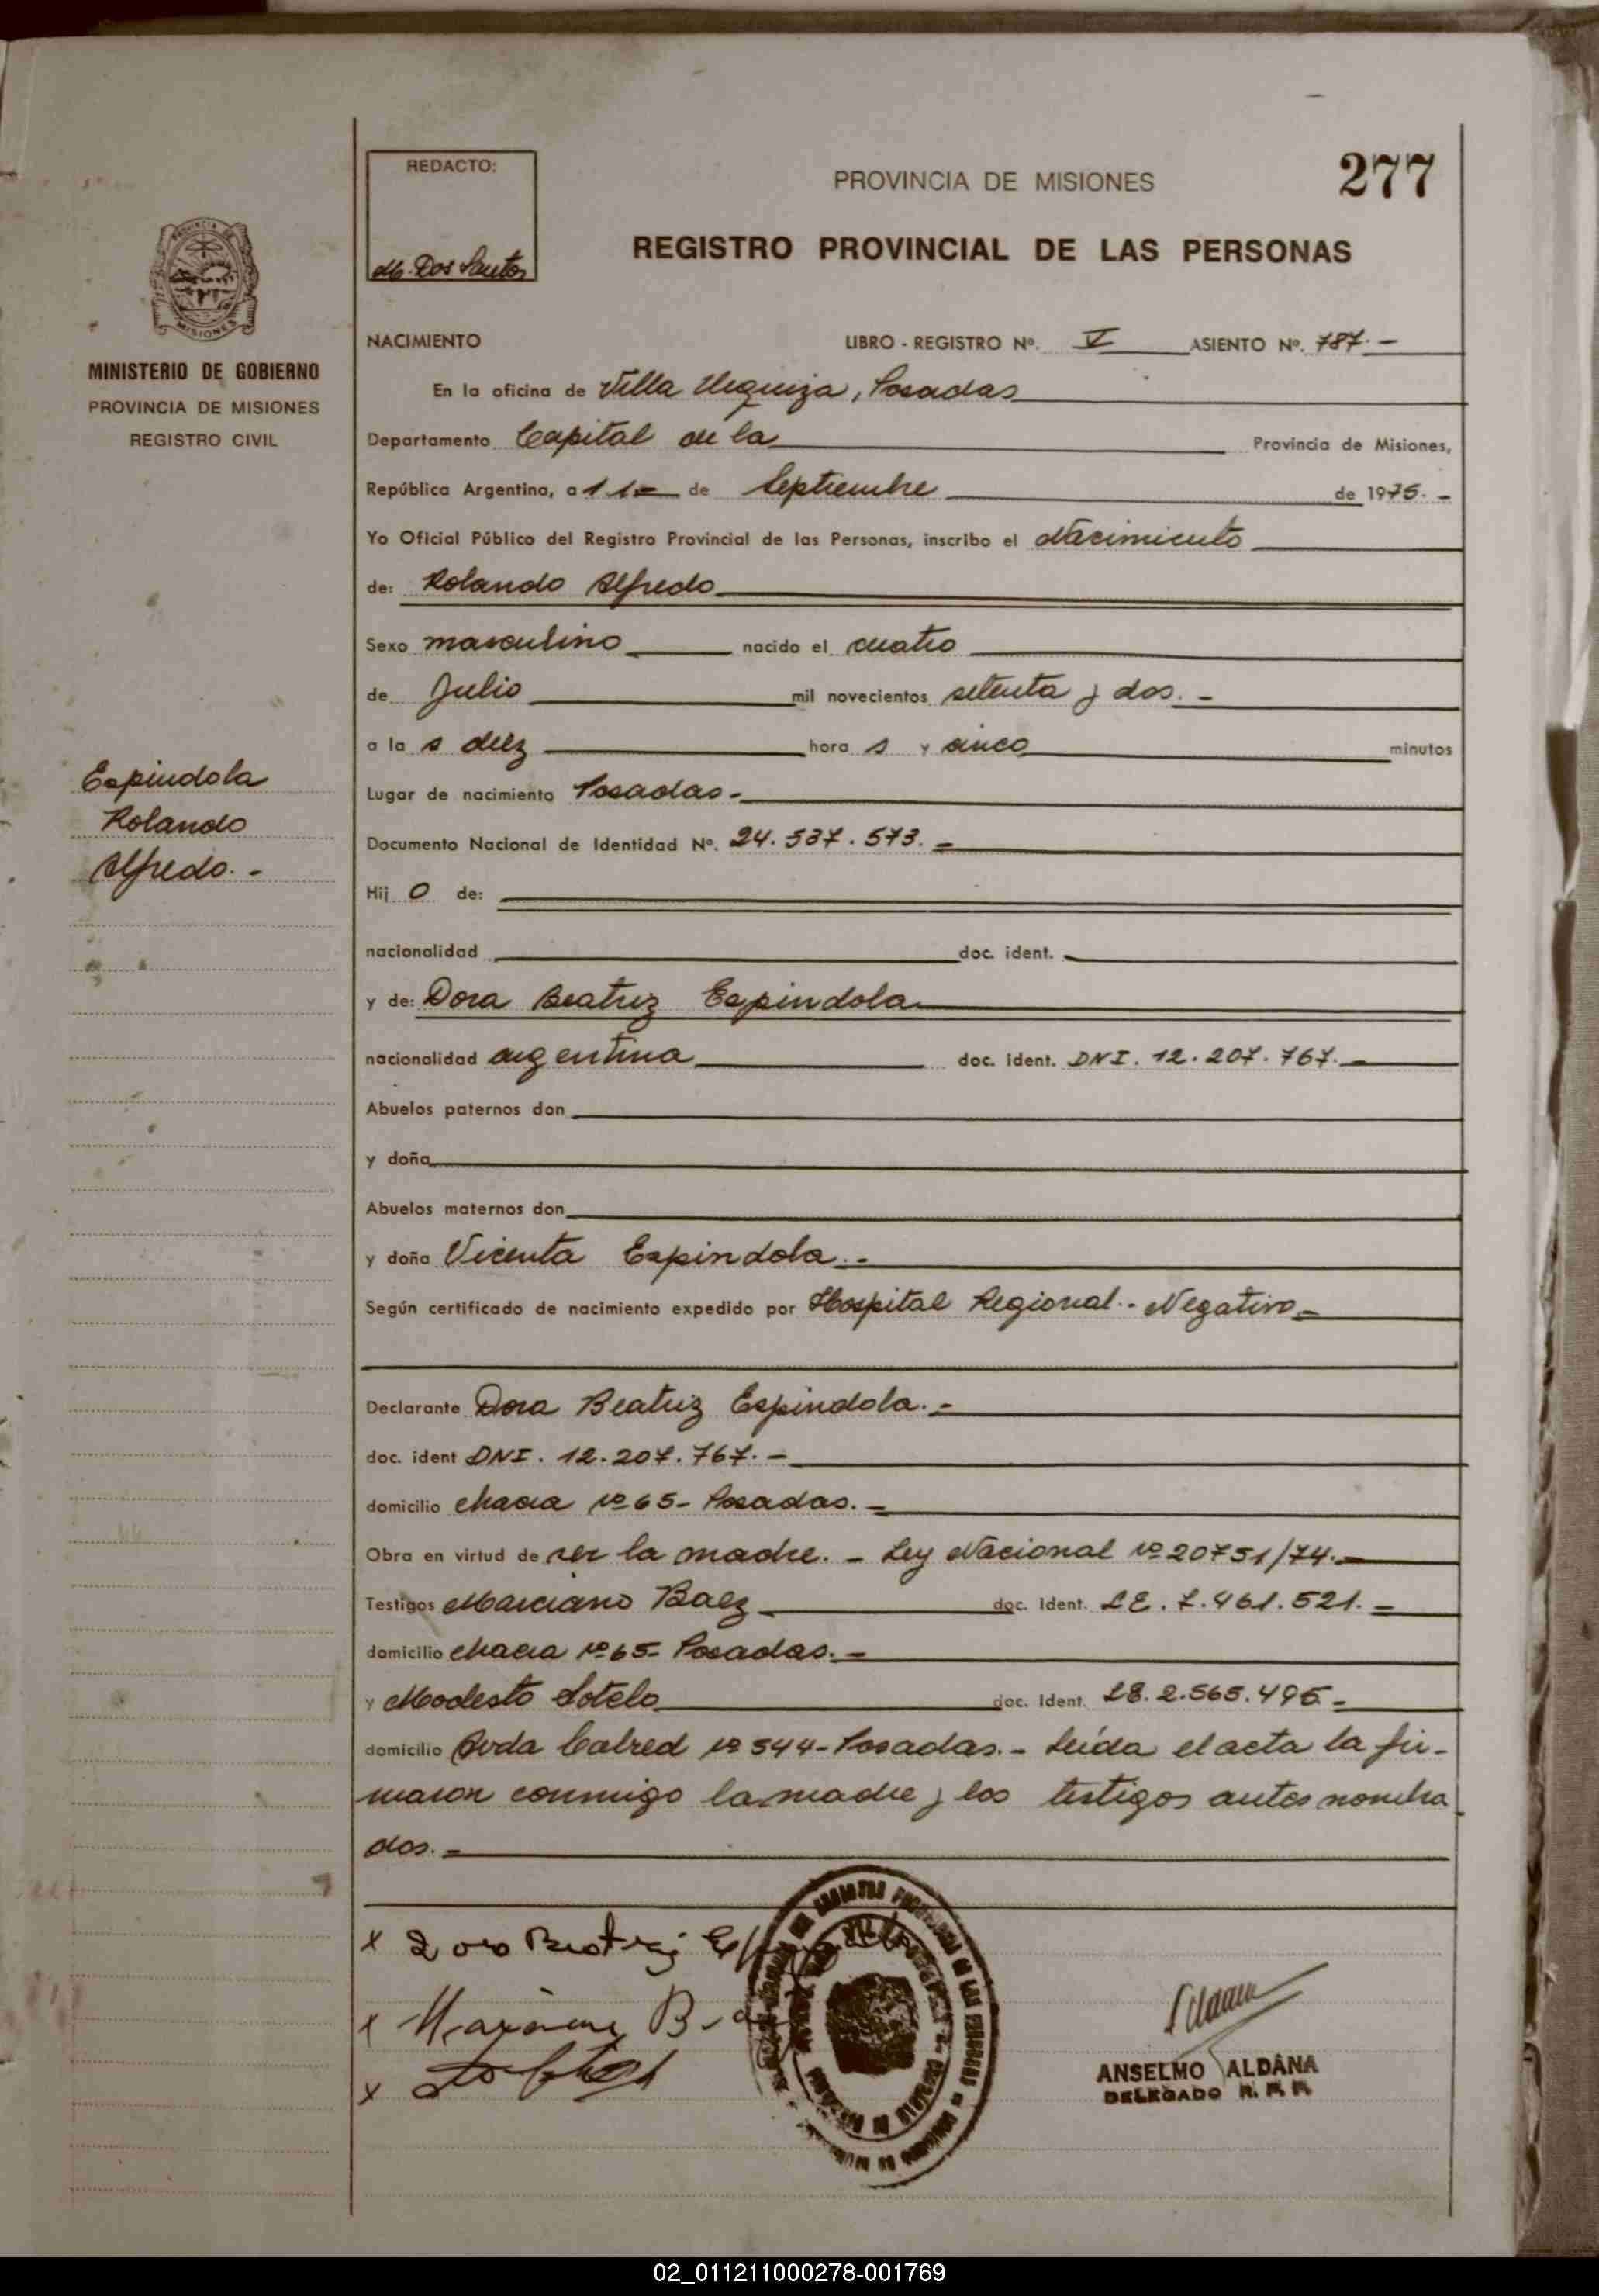 REDACTO:
M. Dos Santos
PROVINCIA DE MISIONES
277
REGISTRO PROVINCIAL DE LAS PERSONAS
MISIONES
MINISTERIO DE GOBIERNO
PROVINCIA DE MISIONES
REGISTRO CIVIL
NACIMIENTO LIBRO - REGISTRO Nº. V ASIENTO Nº. 787.-
En la oficina de Villa Urquiza, Posadas
Departamento Capital de la Provincia de Misiones,
República Argentina, a 11= de Septiembre de 1975.-
Yo Oficial Público del Registro Provincial de las Personas, inscribo el Nacimiento
de: Rolando Alfredo
Sexo masculino nacido el cuatro
de Julio mil novecientos setenta y dos.-
a la s diez hora s y cinco minutos
Espindola
Rolando
Alfredo.-
Lugar de nacimiento Posadas-
Documento Nacional de Identidad Nº. 24.537.573.-
Hij o de:
nacionalidad doc. ident.
y de: Dora Beatriz Espindola
nacionalidad argentina doc. ident. DNI. 12.207.767.-
Abuelos paternos don
y doña
Abuelos maternos don
y doña Vicenta Espindola.-
Según certificado de nacimiento expedido por Hospital Regional.- Negativo-
Declarante Dora Beatriz Espindola.-
doc. ident DNI. 12.207.767.-
domicilio chacra nº 65- Posadas.-
Obra en virtud de ser la madre.- Ley Nacional nº 20751/74.-
Testigos Marciano Baez doc. Ident. LE. 7.461.521.-
domicilio chacra nº 65- Posadas.-
y Modesto Sotelo doc. Ident. 2.565.495-
domicilio nº 544-Posadas.- Leída el acta la fir-
maron conmigo la madre y los testigos antes nombra
dos.-
x Dora Beatriz
x
x
ANSELMO ALDANA
DELEGADO R. P. P.
02_011211000278-001769